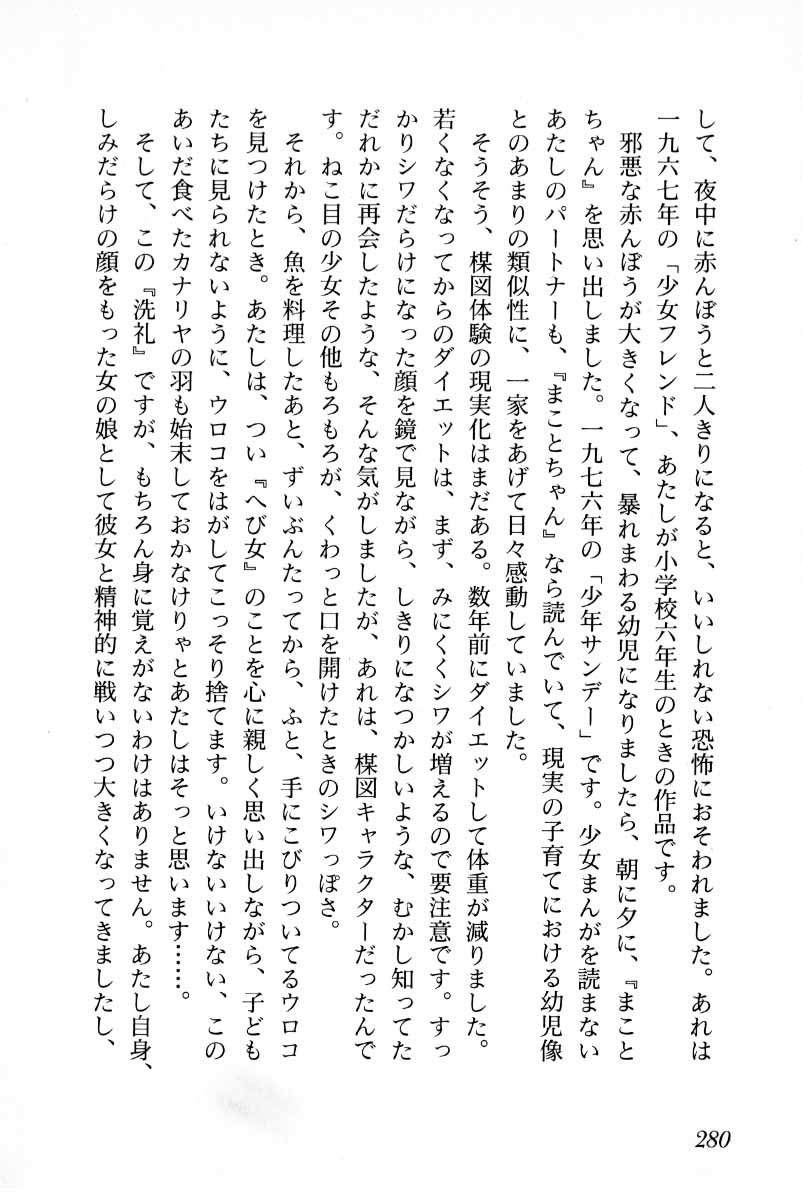 して、夜中に赤んぼうと二人きりになると、いいしれない恐怖におそわれました。あれは
一九六七年の「少女フレンド」、あたしが小学校六年生のときの作品です。
邪悪な赤んぼうが大きくなって、暴れまわる幼児になりましたら、朝に夕に、『まこと
ちゃん』を思い出しました。一九七六年の「少年サンデー」です。少女まんがを読まない
あたしのパートナーも、『まことちゃん』なら読んでいて、現実の子育てにおける幼児像
とのあまりの類似性に、一家をあげて日々感動していました。
そうそう、楳図体験の現実化はまだある。数年前にダイエットして体重が減りました。
若くなくなってからのダイエットは、まず、みにくくシワが増えるので要注意です。すっ
かりシワだらけになった顔を鏡で見ながら、しきりになつかしいような、むかし知ってた
だれかに再会したような、そんな気がしましたが、あれは、楳図キャラクターだったんで
す。ねこ目の少女その他もろもろが、くわっと口を開けたときのシワっぽさ。
それから、魚を料理したあと、ずいぶんたってから、ふと、手にこびりついてるウロコ
を見つけたとき。あたしは、つい『へび女』のことを心に親しく思い出しながら、子ども
たちに見られないように、ウロコをはがしてこっそり捨てます。いけないいけない、この
あいだ食べたカナリヤの羽も始末しておかなけりゃとあたしはそっと思います……。
そして、この『洗礼』ですが、もちろん身に覚えがないわけはありません。あたし自身、
しみだらけの顔をもった女の娘として彼女と精神的に戦いつつ大きくなってきましたし、
280